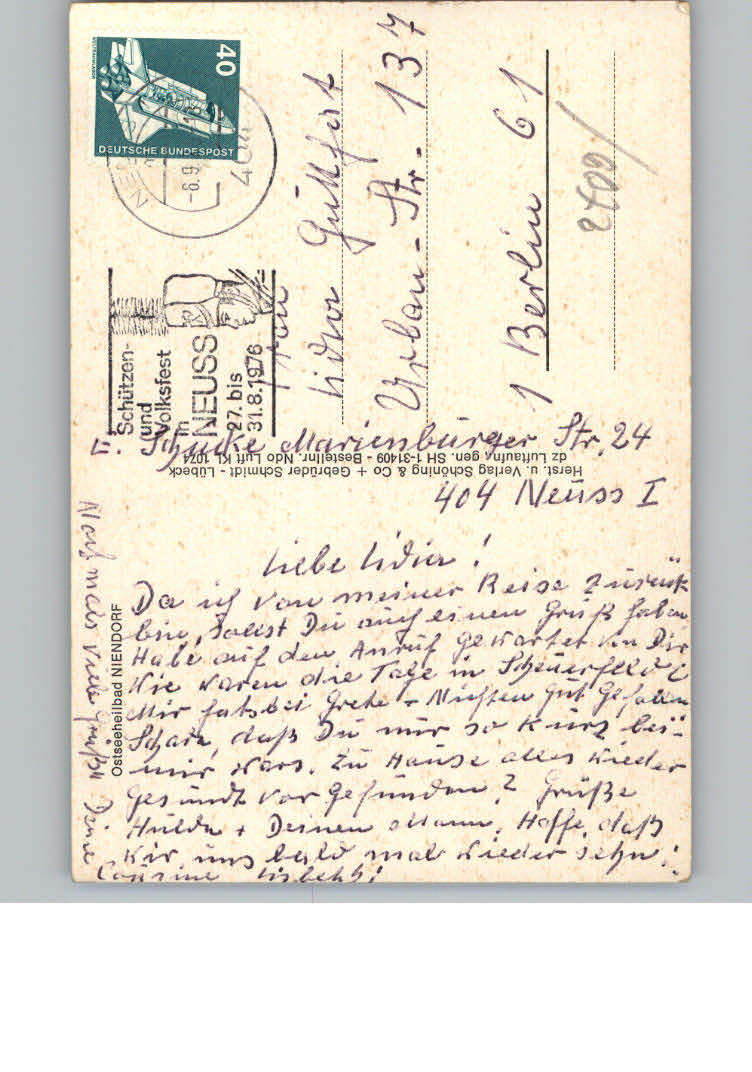 40
WELTRAUMLABOR
DEUTSCHE BUNDESPOST
404
-6.9.
Schützen-
und
Volksfest
in
NEUSS
27. bis
31.8.1976
Frau
Lidia
Urban-Str. 137
1 Berlin 61
Marienburger Str. 24
404 Neuss I
Herst. u. Verlag Schöning & Co + Gebrüder Schmidt - Lübeck
dz Luftaufn. gen. SH 1-31409 - Bestellnr. Ndo Luft KL 1074
Ostseeheilbad NIENDORF
Liebe Lidia!
Da ich von meiner Reise zurück
bin, sollst Du auch einen Gruß haben
Habe auf den Anruf gewartet von Dir
Wie waren die Tage in Scheuerfeld?
Mir hats bei Grete + Nichten gut Gefallen
Schade, daß Du nur so kurz bei
mir wars. Zu Hause alles wieder
gesundt vor gefunden? Grüße
Hulda + Deinen Mann. Hoffe, daß
wir uns bald mal wieder sehn.
Nochmals viele Grüße Deine
Cousine Lisbeth!